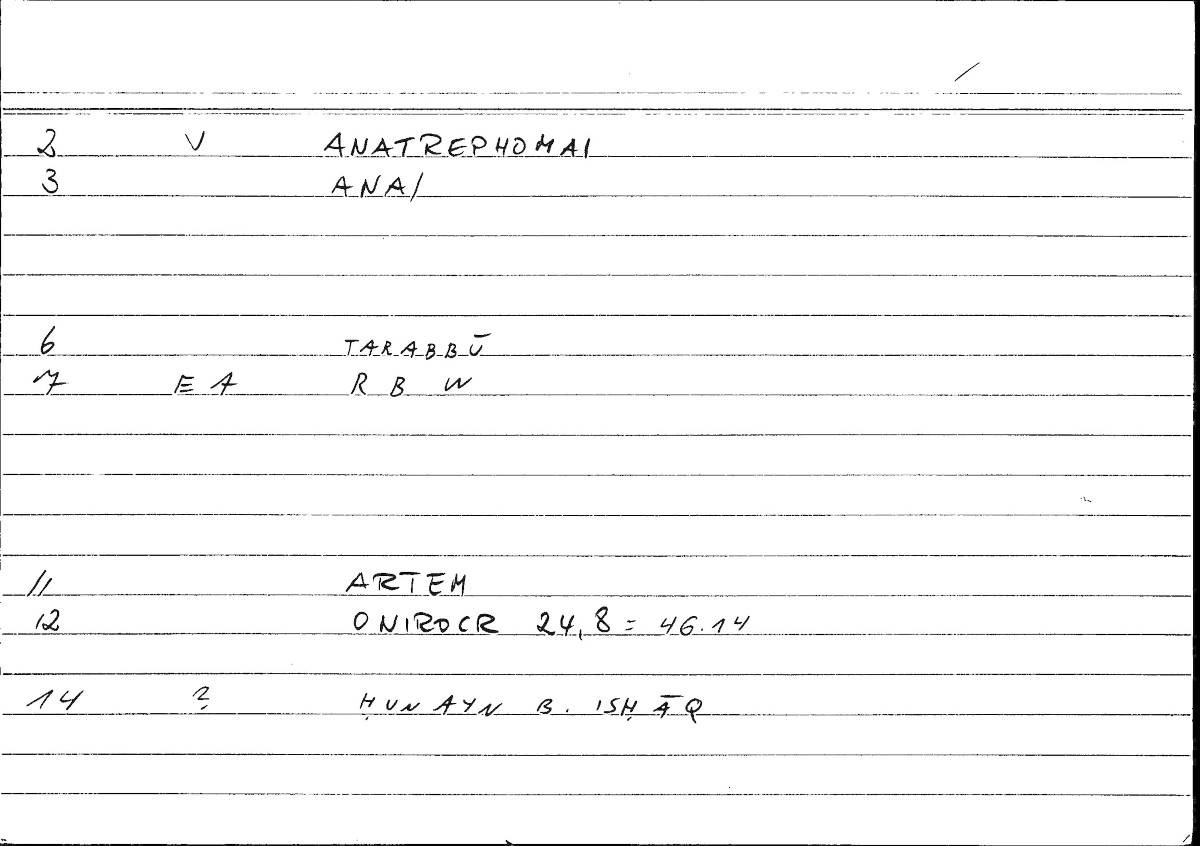 2 V ANATREPHOMAI
3 ANA/
6 TARABBŪ
7 EA R B W
11 ARTEM
12 ONIROCR 24,8 = 46.14
14 ? ḤUNAYN B. ISḤĀQ